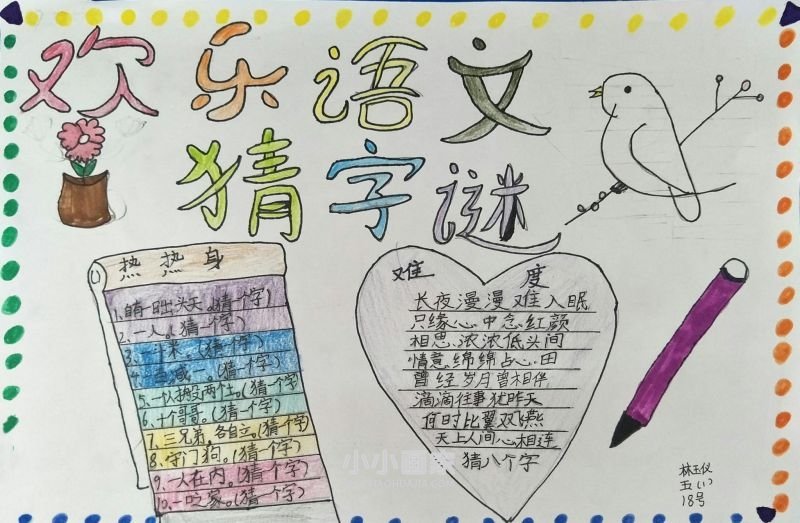 欢乐语文
猜字谜
热热身
1.自有一日出头天。(猜一个字)
2.一人。(猜一个字)
3.一寸米。(猜一个字)
4.减一。(猜一个字)
5.一队换两灶。(猜一个字)
6.十个哥哥。(猜一个字)
7.三兄弟,各自立。(猜一个字)
8.守门狗。(猜个字)
9.一人在内。(猜个字)
10.一口之家。(猜个字)
难度
长夜漫漫难入眠
只缘心中念红颜
相思浓浓低头间
情意绵绵占心田
曾经岁月曾相伴
滴滴往事犹昨天
何时比翼双燕
天上人间心相连
猜八个字
小小画家
林玉仪
五(1)
18号